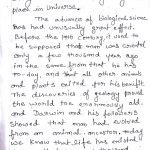 place in Universe.
The advance of Biological science
has had unusually great effect.
Before the 19th Century it used
to be supposed that man was created
only a few thousand years ago
in the same from that he has
to-day, and that all other animals
and plants exist for his benefit.
The discoveries of geology proved
the world too enormously old
and Darwin and his followers
showed that man had evolved
from an animal ancestor. today
we know that life has existed